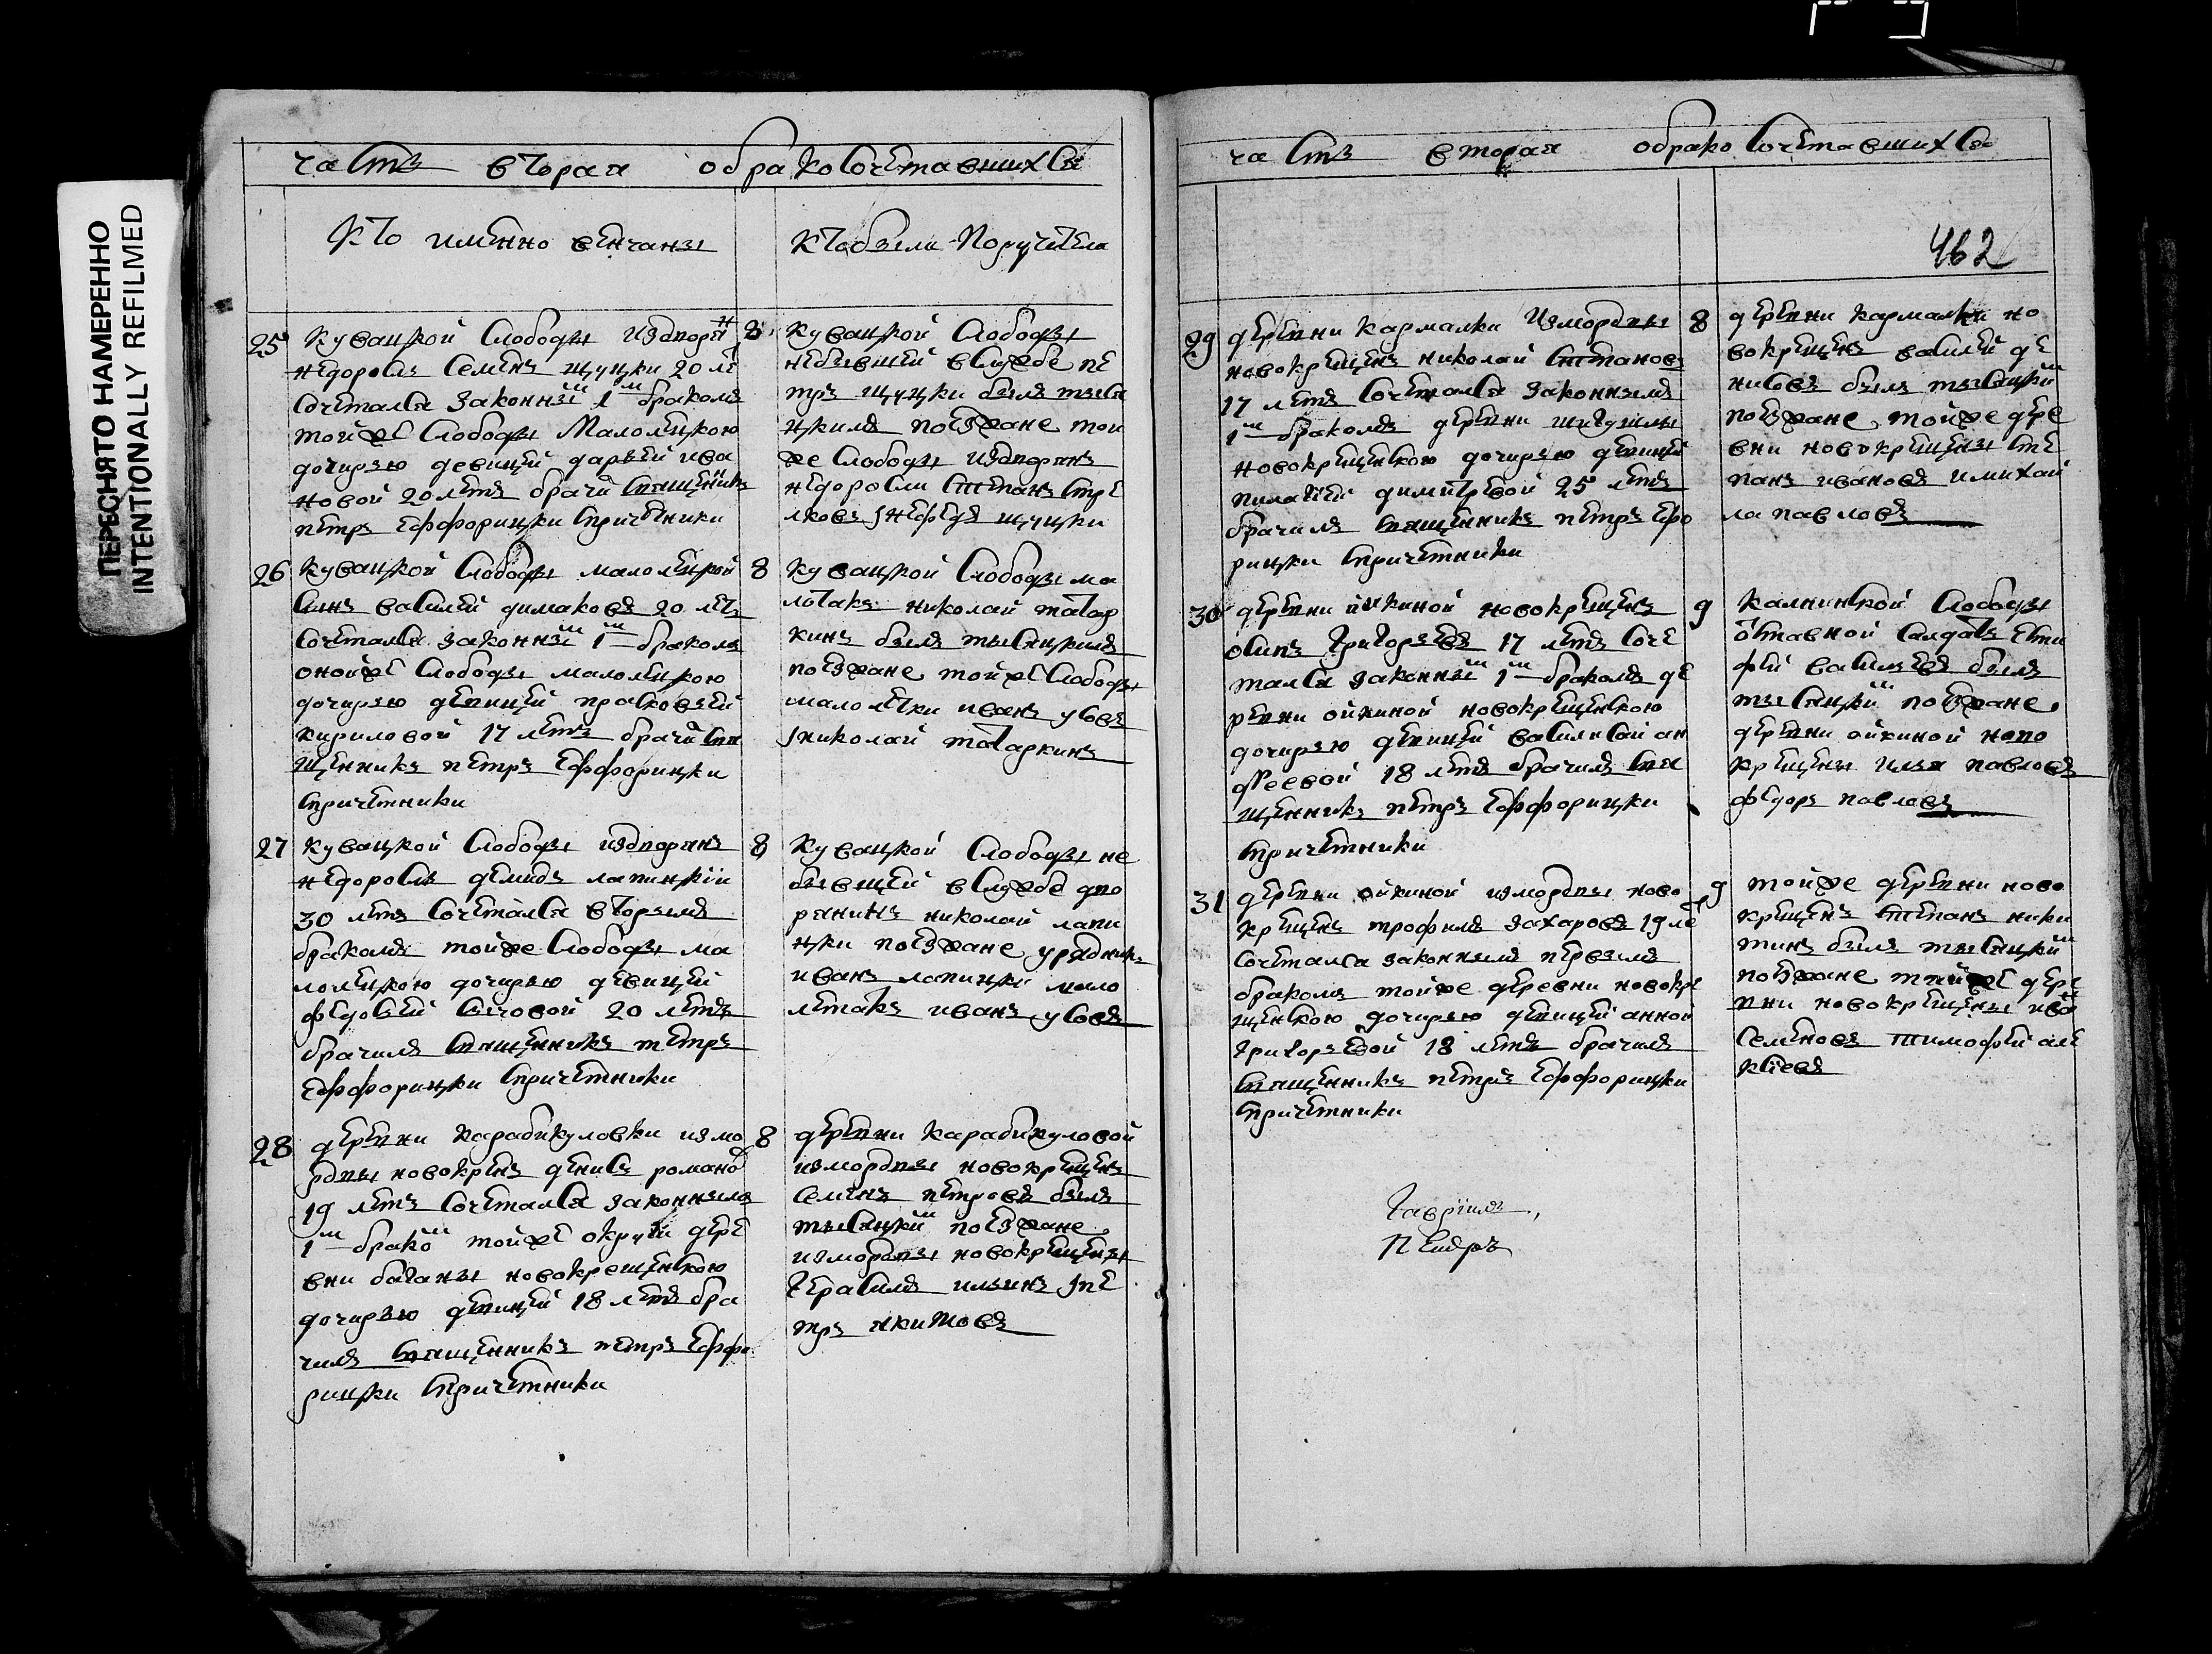 ПЕРЕСНЯТО НАМЕРЕННО
INTENTIONALLY REFILMED
часть вторая обракосочетавшихся
Кто именно венчаны
Кто были Поручители
25
Кувацкой Слободы издворян
недоросль Семенъ щуцки 20 лѣ
сочетался законны 1м бракомъ
тойже Слободы Малолецкою
дочирью девицей дарьей ива
новой 20 летъ брачи священикъ
петръ Еффорицки спричетники
8
Кувацкой Слободы
небывшей вслужбе пе
тръ щуцки былъ тыся
цкимъ поезжане той
же Слободы издворянъ
недоросли Степанъ Стре
лковъ нефедъ щуцки
26
Кувацкой Слободы малолецкой
сынъ василей димаковъ 20 лѣтъ
сочетался законны 1м бракомъ
онойже Слободы малолецкою
дочирью девицей прасковьей
кириловой 17 летъ брачи свя
щенникъ петръ Еффорицки
спричетники
8
Кувацкой Слободы ма
лотакъ николай татар
кинъ былъ тысяцкимъ
поезжане тойже Слободы
малолѣтки иванъ усовъ
николай татаркинъ
27
Кувацкой Слободы издворянъ
недоросль демидъ лапинкіи
30 летъ сочетался вторымъ
бракомъ тойже Слободы ма
лолецкою дочирью девицей
федосьей 20 летъ
брачилъ священникъ петръ
Еффорицки спричетники
8
Кувацкой Слободы не
бывщей вслужбе дво
ранинъ николай лапи
нцки поезжане урядникъ
иванъ лапицки мало
летакъ иванъ усовъ
28
деревни карабикуловки измо
рдвы новокренъ денисъ романо
19 летъ сочетался законнымъ
1м брако тойже округи дере
вни баганы новокрещенскою
дочирью девицей 18 летъ бра
чилъ священникъ петръ Еффо
рицки спричетники
8
деревни карабикуловой
измордвы новокрещенъ
Семенъ петровъ былъ
тысяцки поезжане
измордвы новокрещены
Герасимъ ильинъ пе
тръ акимовъ
часть вторая обракосочетавшихся
462
29
деревни кармалки измордвы
новокрещенъ николай степановъ
17 летъ сочетался законнымъ
1м бракомъ деревни
новокрещенскою дочирью девицей
пилагией димитревой 25 летъ
брачилъ священникъ петръ Ефо
рицки спричетники
8
деревни кармалки но
вокрещенъ василей де
нисовъ былъ тысяцки
поезжане тойже дере
вни новокрещены сте
панъ ивановъ имихай
ла павловъ
30
деревни ойкиной новокрещенъ
осипъ Григорьевъ 17 летъ соче
тался законны 1м бракомъ де
ревни ойкиной новокрещенскою
дочирью девицей василисай ан
дреевой 18 летъ брачилъ свя
щенникъ петръ Еффорицки
спричетники
9
Калнинской Слободы
отставной салдатъ Ети
фей васильевъ былъ
тысяцки поезжане
деревни ойкиной ново
крещены илья павловъ
федоръ павловъ
31
деревни ойкиной измордвы ново
крещенъ трофимъ захаровъ 19 ле
сочетался законнымъ первымъ
бракомъ тойже деревни новокре
щенскою дочирью девицей анной
Григорьевой 18 летъ брачилъ
священникъ петръ Еффорицки
спричетники
9
тойже деревни ново
крещенъ степанъ ники
тинъ былъ тысяцкий
поезжане тойже дере
вни новокрещены ива
Семеновъ тимофей але
ксіевъ
Гавріилъ